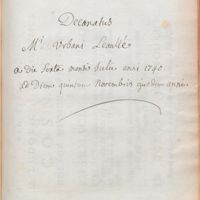 Decanatus
Mri Urbani Leaullé
a die sexta mensis Julii anni 1740.
ad Diem quintum Novembris ejusdem anni.